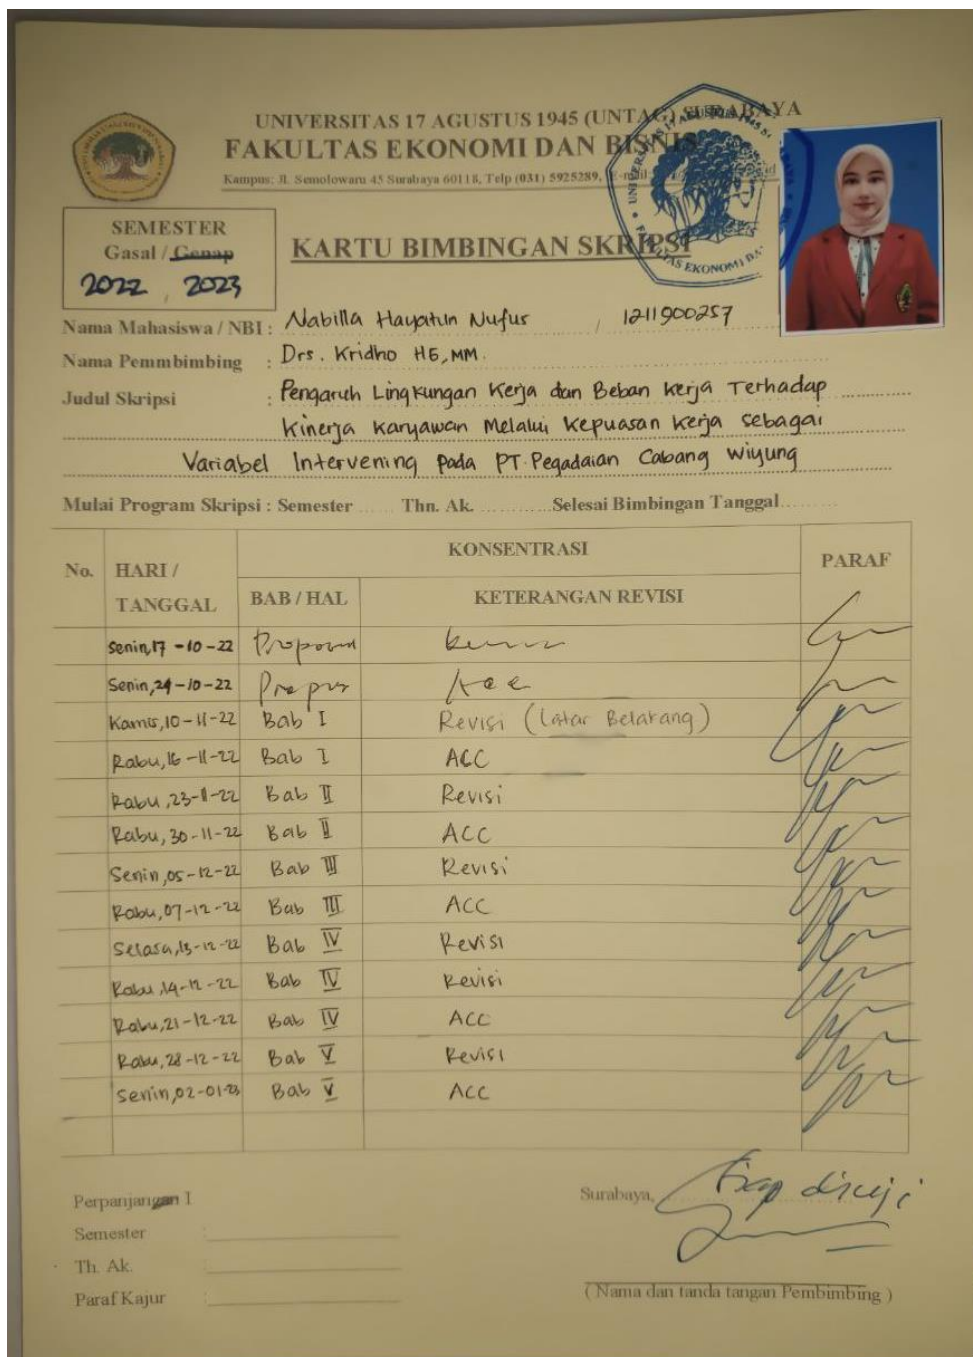 UNIVERSITAS 17 AGUSTUS 1945 (UNTAG) SURABAYA
FAKULTAS EKONOMI DAN BISNIS
Kampus: Jl. Semolowaru 45 Surabaya 60118, Telp (031) 5925289,
SEMESTER
Gasal / Genap
2022 , 2023
KARTU BIMBINGAN SKRIPSI
Nama Mahasiswa / NBI : Nabilla Hayatun Nufus , 1211900257
Nama Pemmbimbing : Drs. Kridho HE, MM.
Judul Skripsi : Pengaruh Lingkungan Kerja dan Beban Kerja Terhadap
Kinerja Karyawan Melalui Kepuasan Kerja sebagai
Variabel Intervening pada PT. Pegadaian Cabang Wiyung
Mulai Program Skripsi : Semester ...... Thn. Ak. ............Selesai Bimbingan Tanggal.........
No. HARI / TANGGAL KONSENTRASI PARAF
BAB / HAL KETERANGAN REVISI
Senin, 17 - 10 - 22 Proposal
Senin, 24 - 10 - 22 Acc
Kamis, 10 - 11 - 22 Bab I Revisi (Latar Belakang)
Rabu, 16 - 11 - 22 Bab I ACC
Rabu, 23 - 11 - 22 Bab II Revisi
Rabu, 30 - 11 - 22 Bab II ACC
Senin, 05 - 12 - 22 Bab III Revisi
Rabu, 07 - 12 - 22 Bab III ACC
Selasa, 13 - 12 - 22 Bab IV Revisi
Rabu, 14 - 12 - 22 Bab IV Revisi
Rabu, 21 - 12 - 22 Bab IV ACC
Rabu, 28 - 12 - 22 Bab V Revisi
Senin, 02 - 01 - 23 Bab V ACC
Perpanjangan I
Semester :
Th. Ak. :
Paraf Kajur :
Surabaya, Siap diuji
( Nama dan tanda tangan Pembimbing )